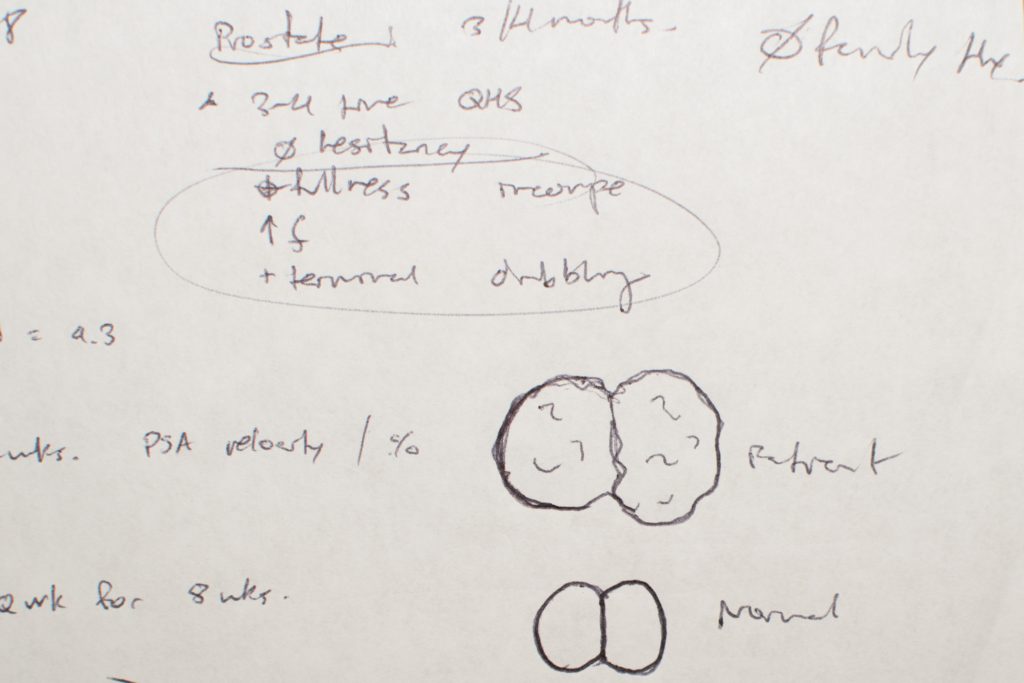 8
Prostate 3/4 months. Ø family Hx
3-4 time QHS
Ø hesitancy
fullness incompe
↑ f
+ terminal dribbling
= 4.3
wks. PSA velocity / %
Patient
Q wk for 8 wks.
Normal